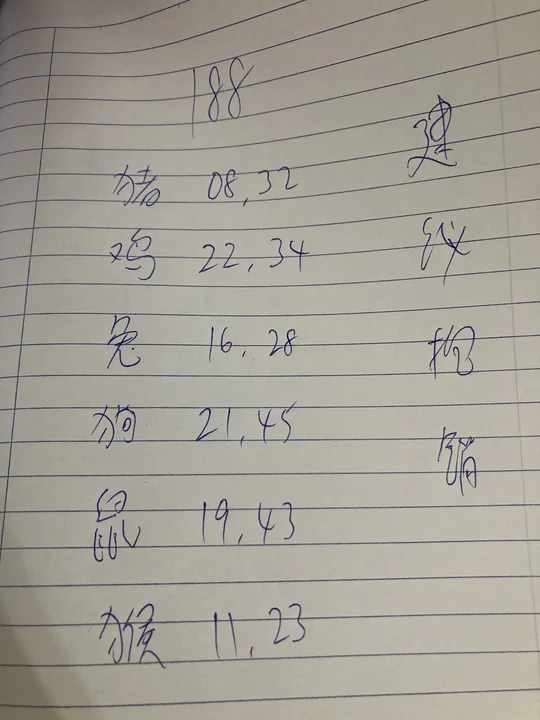 188
猪 08,32
鸡 22,34
兔 16,28
狗 21,45
鼠 19,43
猴 11,23
建
议
抱